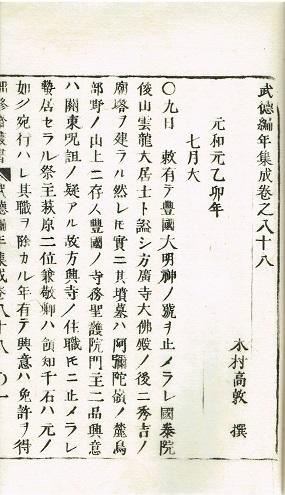 武德編年集成卷之八十八
木村高敦 撰
元和元乙卯年
七月大
〇九日 敕有テ豐國大明神ノ號ヲ止メラレ國泰院
後山雲龍大居士ト謚シ方廣寺大佛殿ノ後ニ秀吉ノ
廟塔ヲ建ラル然レ𪜈實ニ其墳墓ハ阿彌陀嶺ノ麓鳥
部野ノ山上ニ存ノ豐國ノ寺務聖護院門主二品興意
ハ關東呪詛ノ疑アル故方興寺ノ住職𪜈ニ止メラレ
蟄居セラル祭主萩原二位兼敬卿ハ領知千石ハ元ノ
如ク宛行ハレ其職ヲ除カル年有テ興意ハ免許ヲ得
武德編年集成卷八十八 〇一